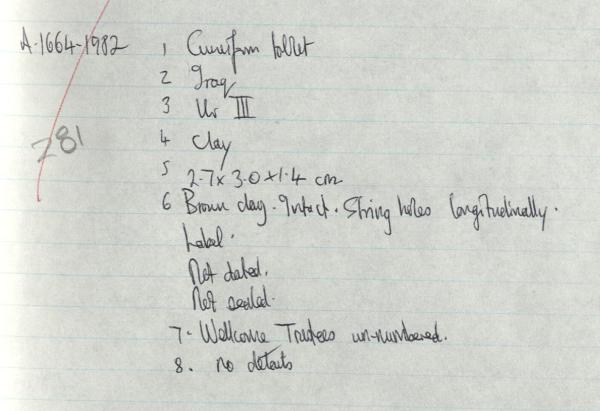 A.1664-1982 1 Cuneiform tablet
2 Iraq
3 Ur III
4 Clay
281
5 2.7 x 3.0 x 1.4 cm
6 Brown clay. Intact. String holes longitudinally.
Label.
Not dated.
Not sealed.
7. Wellcome Trustees un-numbered.
8. no details